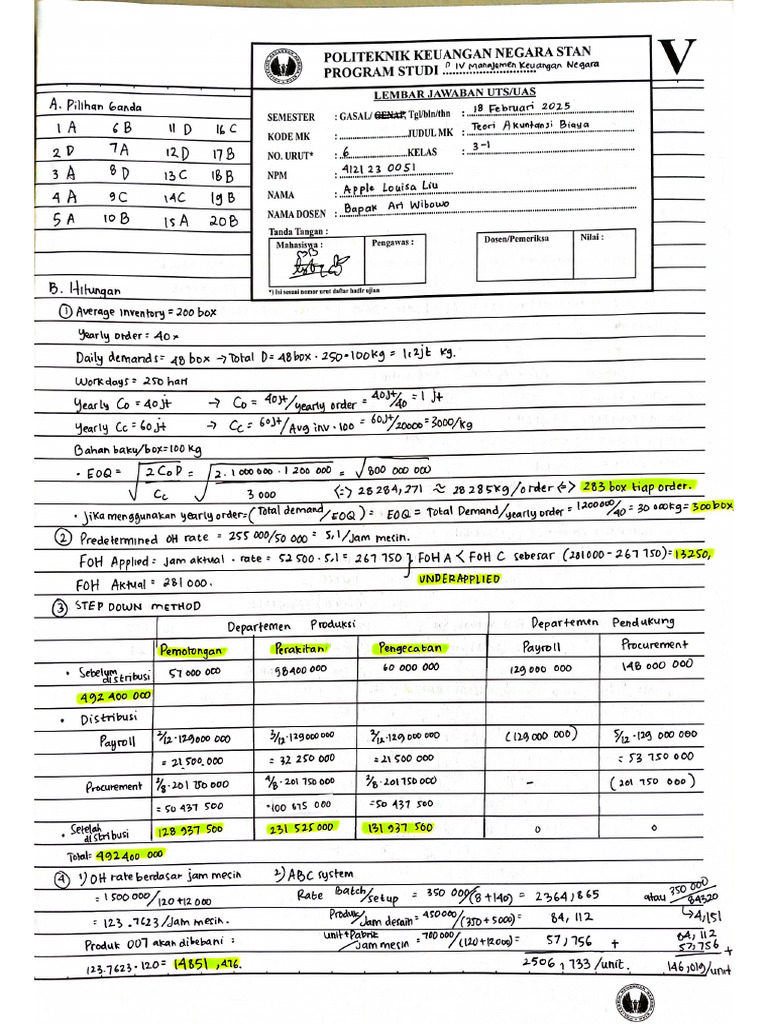 POLITEKNIK KEUANGAN NEGARA STAN
PROGRAM STUDI D IV Manajemen Keuangan Negara
V
LEMBAR JAWABAN UTS/UAS
SEMESTER : GASAL/ GENAP, Tgl/bln/thn : 18 Februari 2025
KODE MK : JUDUL MK : Teori Akuntansi Biaya
NO. URUT* : 6 KELAS : 3-1
NPM : 4121 23 0051
NAMA : Apple Louisa Liu
NAMA DOSEN : Bapak Ari Wibowo
Tanda Tangan :
Mahasiswa : Pengawas : Dosen/Pemeriksa Nilai :
*) Isi sesuai nomor urut daftar hadir ujian
A. Pilihan Ganda
1 A 6 B 11 D 16 C
2 D 7 A 12 D 17 B
3 A 8 D 13 C 18 B
4 A 9 C 14 C 19 B
5 A 10 B 15 A 20 B
B. Hitungan
① Average inventory = 200 box
Yearly order = 40x
Daily demands = 48 box → Total D = 48 box · 250 · 100 kg = 1,2jt kg.
Work days = 250 hari
Yearly Co = 40jt → Co = 40jt/yearly order = 40jt/40 = 1 jt
Yearly Cc = 60jt → Cc = 60jt/Avg inv · 100 = 60jt/20000 = 3000/kg
Bahan baku/box = 100 kg
• EOQ = √(2 Co D / Cc) = √(2 . 1 000 000 . 1 200 000 / 3 000) = √800 000 000
(=) 28 284,271 ≈ 28 285kg/order (=) 283 box tiap order.
• Jika menggunakan yearly order = (Total demand/EOQ) = EOQ = Total Demand/yearly order = 1200000/40 = 30 000kg = 300box
② Predetermined OH rate = 255 000/50 000 = 5,1/jam mesin.
FOH Applied = jam aktual · rate = 52 500 · 5,1 = 267 750 } FOH A < FOH C sebesar (281000 - 267 750) = 13250,
FOH Aktual = 281 000. UNDERAPPLIED
③ STEP DOWN METHOD
Departemen Produksi Departemen Pendukung
Pemotongan Perakitan Pengecatan Payroll Procurement
• Sebelum distribusi 57 000 000 98 400 000 60 000 000 129 000 000 148 000 000
492 400 000
• Distribusi
Payroll 2/12 · 129 000 000 3/12 · 129 000 000 2/12 · 129 000 000 (129 000 000) 5/12 · 129 000 000
= 21.500.000 = 32 250 000 = 21 500 000 = 53 750 000
Procurement 2/8 · 201 750 000 4/8 · 201 750 000 2/8 · 201 750 000 - (201 750 000)
= 50 437 500 = 100 875 000 = 50 437 500
• Setelah distribusi 128 937 500 231 525 000 131 937 500 0 0
Total = 492 400 000
④ 1) OH rate berdasar jam mesin 2) ABC system
= 1 500 000/120+12 000 Rate Batch/setup = 350 000/(8+140) = 2364,865 atau 350 000/84320
= 123.7623/Jam mesin. Produk/Jam desain = 450 000/(350+5000) = 84,112 ↳ 4,151
Produk 007 akan dibebani : unit+Pabrik/Jam mesin = 700 000/(120+12000) = 57,756 + 84,112
57,756 +
123.7623 · 120 = 14851,476. 2506,733/unit. 146,019/unit